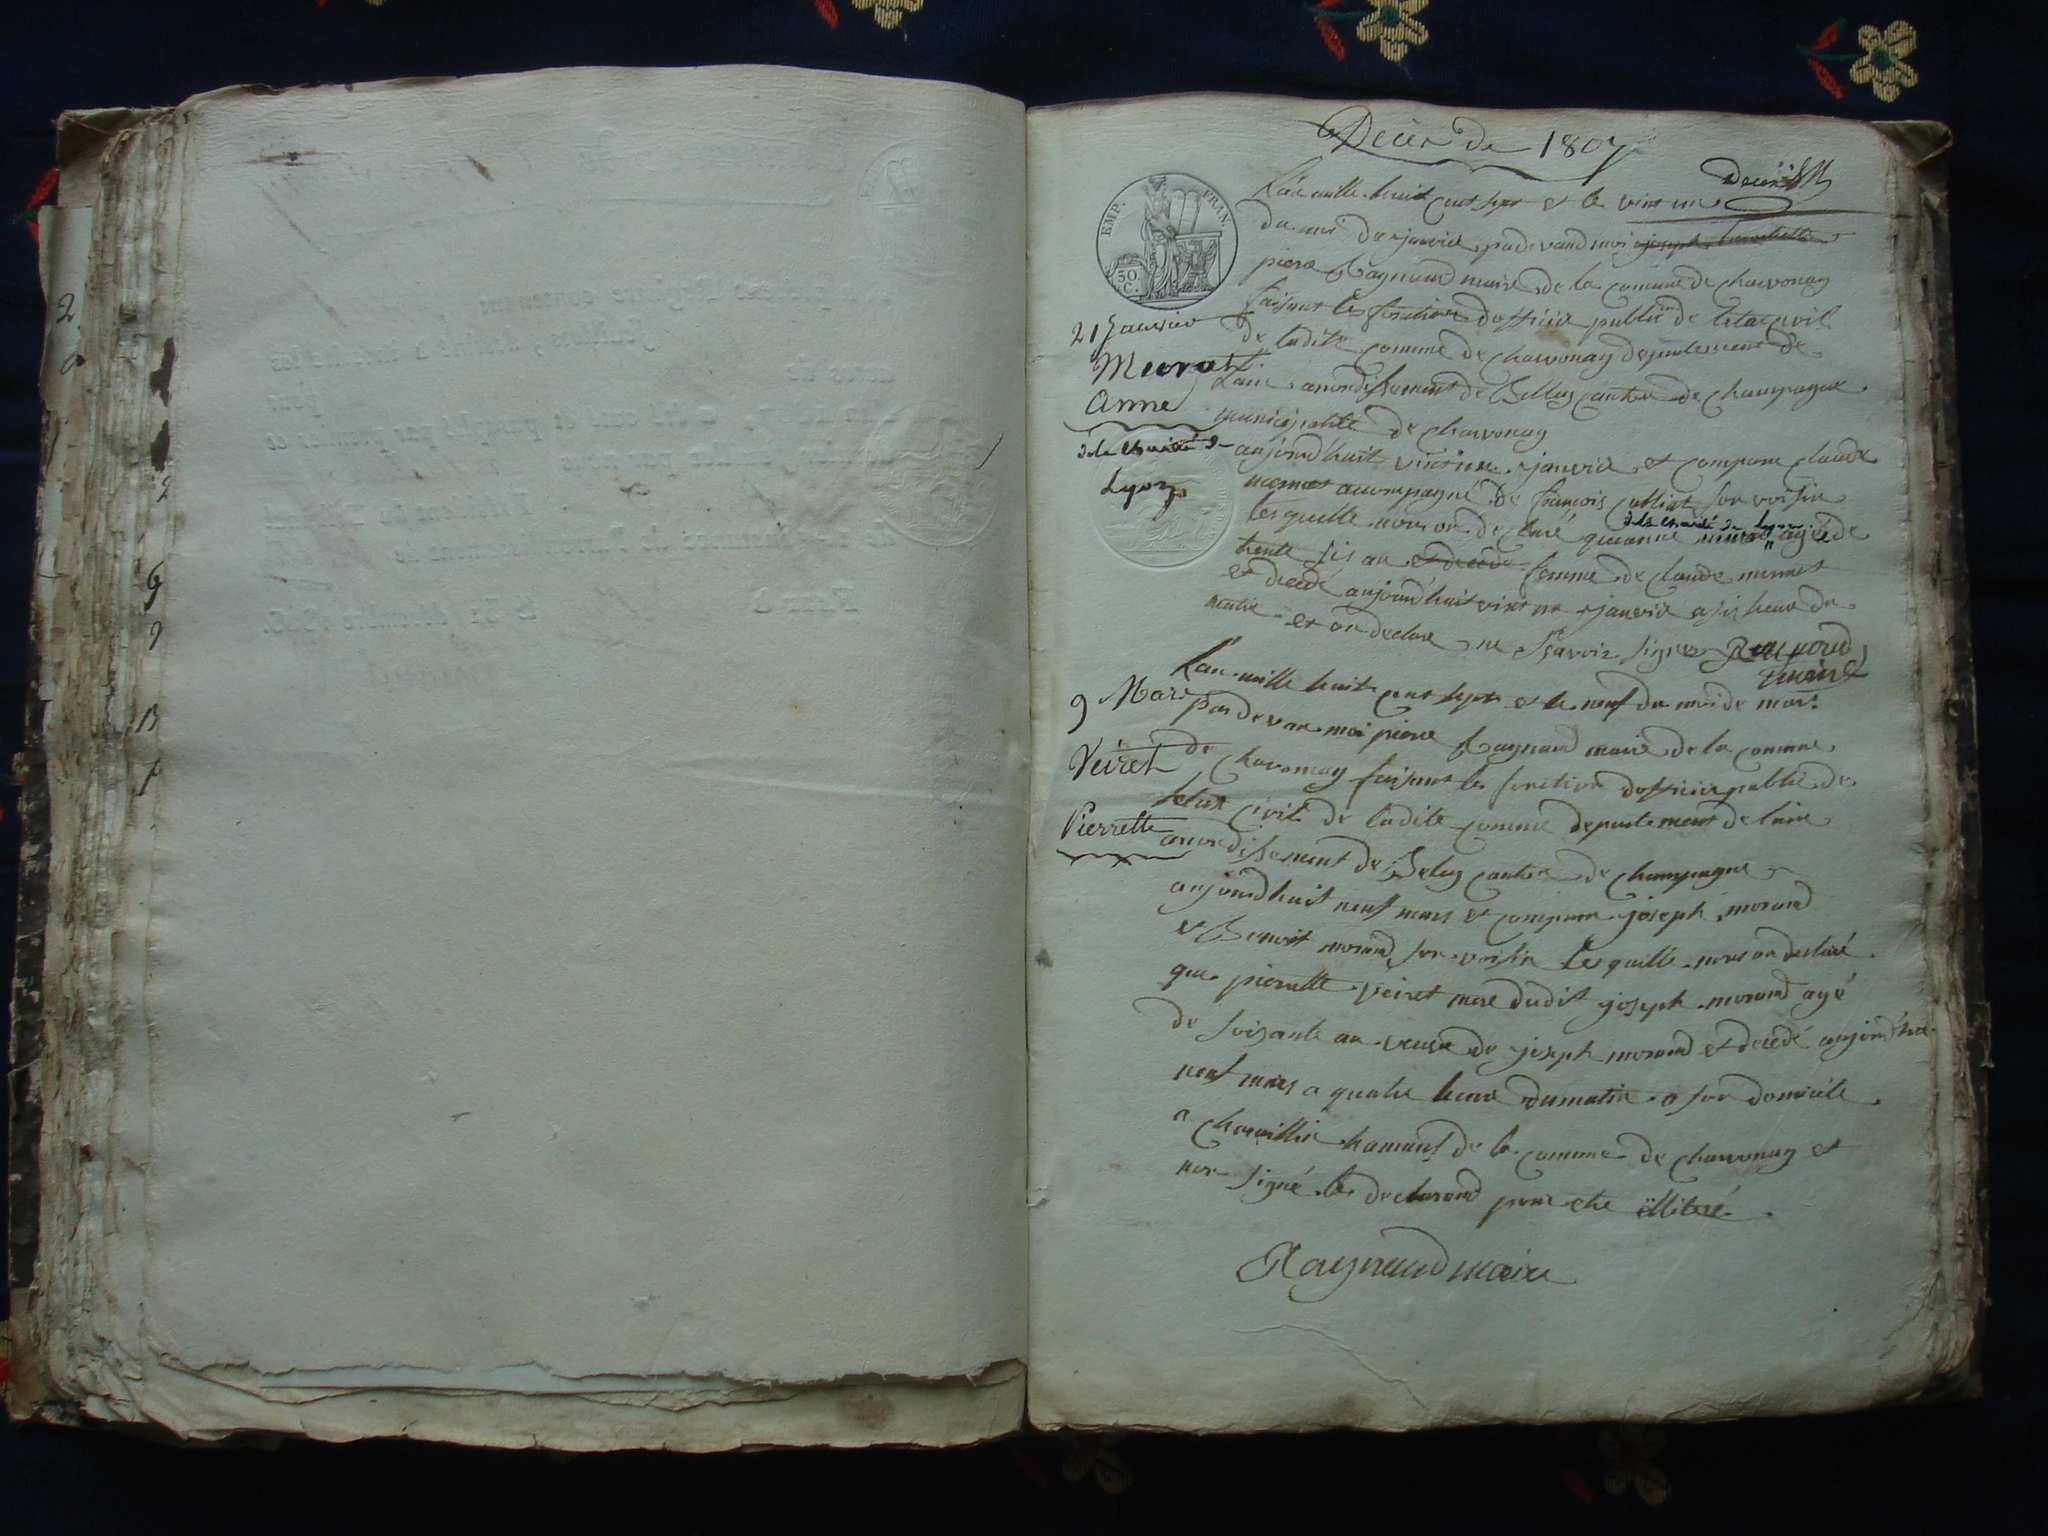 Décès de 1807
Décès
EMP. FRAN.
30 C.
L'an mille huit cent sept et le vint un
du mois de janvier pardevand moi joseph
piere Raynaud maire de la comune de Chavonay
faisant les fonction d'officier public de letat civil
de ladite comune de Chavonay departement de
Lain arondissement de Belley canton de Champagne
municipalité de Chavonay
aujourd'huit vint un janvier et comparu claude
mermet acompagné de françois culliat son voisin
lesquelle nous on declaré que anne de la charité de Lyon agée de
trente six an et decede femme de claude mermet
et decedé aujourd'huit vint un janvier a six heure du
matin et on declare ne sçavoir signer Raynaud
maire
21 Janvier
Mermet
Anne
de la charité de
Lyon
L'an mille huit cent sept et le neuf du moi de mars
par devan moi piere Raynaud maire de la comune
de Chavonay faisant les fonction d'officier public de
letat civil de ladite comune departement de lain
arondissement de Beley canton de Champagne
aujourdhuit neuf mars et comparu joseph morand
et Benoit morand son voisin lesquelle nous on declaré
que pierrette veiret mere dudit joseph morand agé
de soisante an veuve de joseph morand et decedé aujourd'hui
neuf mars a quatre heure du matin a son domicile
a Charvillin hamaut de la comune de Chavonay et
non signé les declarand pour etre illiteré
9 Mars
Veiret
Pierrette
Raynaud maire